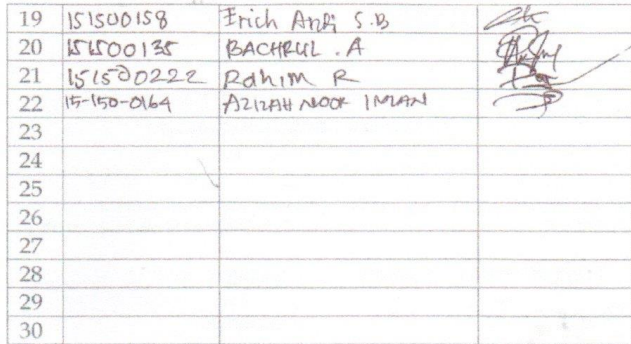 19 151500158 Erich Andi S.B
20 151500135 BACHRUL . A
21 151500222 Rahim R
22 15-150-0164 AZIZAH NOOR IMAN
23
24
25
26
27
28
29
30